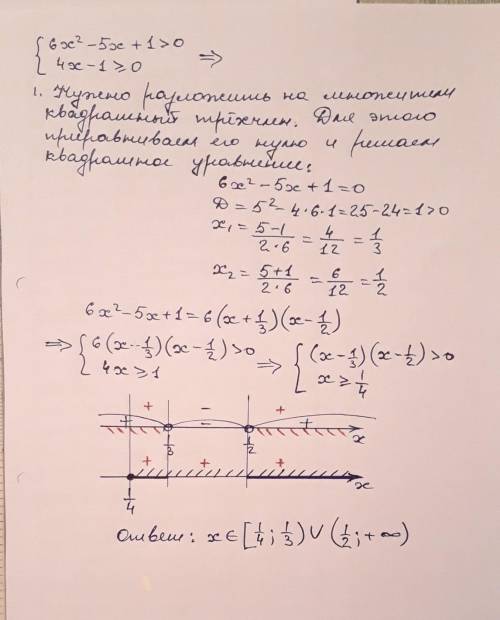 { 6x² - 5x + 1 > 0
{ 4x - 1 ≥ 0 ⇒
1. Нужно разложить на множители
квадратный трёхчлен. Для этого
приравниваем его нулю и решаем
квадратное уравнение:
6x² - 5x + 1 = 0
D = 5² - 4·6·1 = 25 - 24 = 1 > 0
x₁ = (5-1)/(2·6) = 4/12 = 1/3
x₂ = (5+1)/(2·6) = 6/12 = 1/2
6x² - 5x + 1 = 6(x + 1/3)(x - 1/2)
⇒ { 6(x - 1/3)(x - 1/2) > 0 ⇒ { (x - 1/3)(x - 1/2) > 0
{ 4x ≥ 1 { x ≥ 1/4
+ - +
+ - +
1/3 1/2 x
+ + +
1/4 x
Ответ: x ∈ [1/4; 1/3) ∪ (1/2; +∞)